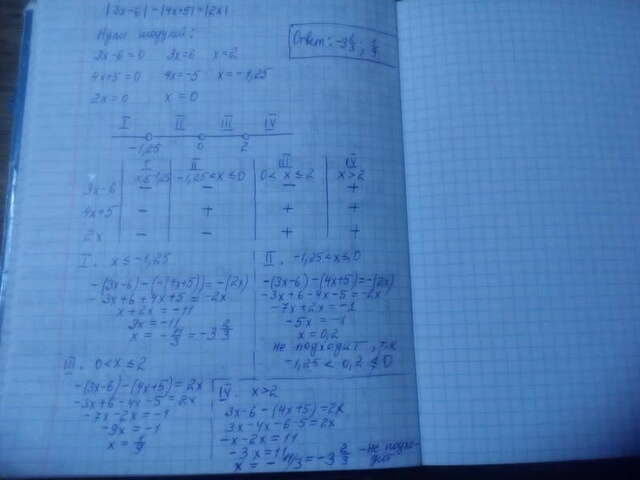 |3x-6| - |4x+5| = |2x|
Нули модулей:
3x-6=0 3x=6 x=2
4x+5=0 4x=-5 x=-1,25
2x=0 x=0
Ответ: -3 2/3; 1/9
I II III IV
-1,25 0 2
I II III IV
x≤-1,25 -1,25<x≤0 0<x≤2 x>2
3x-6 - - - +
4x+5 - + + +
2x - - + +
I. x≤-1,25
-(3x-6)-(-(4x+5))=-(2x)
-3x+6+4x+5=-2x
x+2x=-11
3x=-11
x=-11/3=-3 2/3
II. -1,25<x≤0
-(3x-6)-(4x+5)=-(2x)
-3x+6-4x-5=-2x
-7x+2x=-1
-5x=-1
x=0,2
не подходит, т.к
-1,25<0,2≰0
III. 0<x≤2
-(3x-6)-(4x+5)=2x
-3x+6-4x-5=2x
-7x-2x=-1
-9x=-1
x=1/9
IV. x>2
3x-6-(4x+5)=2x
3x-4x-6-5=2x
-x-2x=11
-3x=11
x=-11/3=-3 2/3 -не подхо-
дит